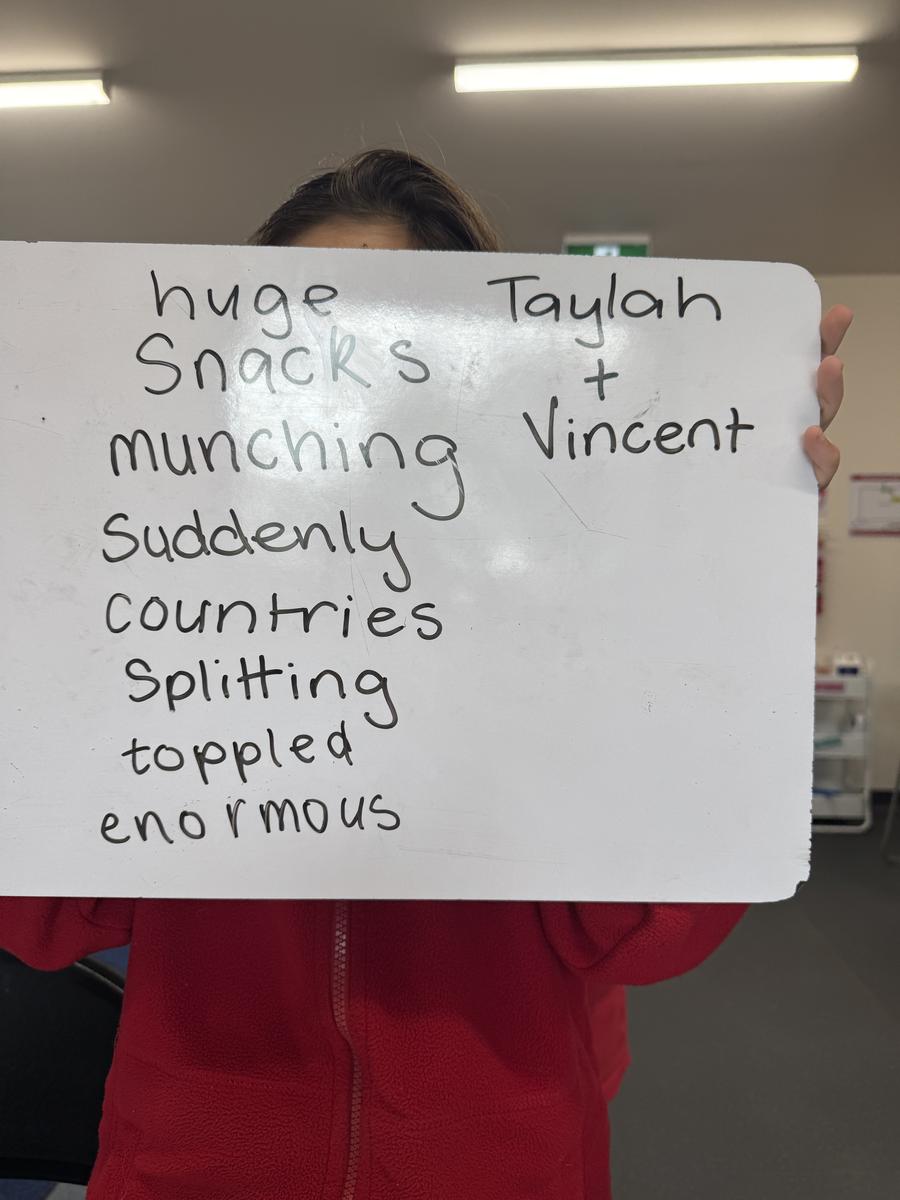 huge
Snacks
munching
Suddenly
countries
Splitting
toppled
enormous
Taylah
+
Vincent